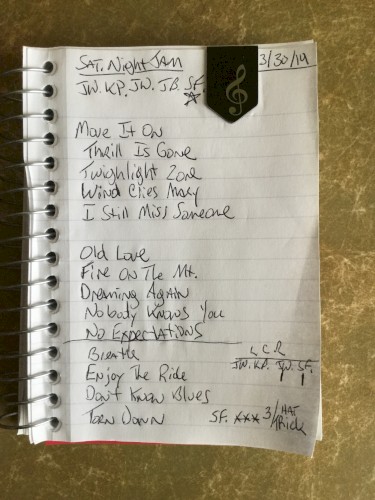 SAT. Night JAM 3/30/19
JW. KP. JW. JB. SF.
Move It On
Thrill Is Gone
Twighlight Zone
Wind Cries Mary
I Still Miss Someone
Old Love
Fire On The Mt.
Dreaming Again
Nobody Knows You
No Expectations
Breathe
L C R
JW. KP. JW. SF.
Enjoy The Ride
Don't Know Blues
Torn Down SF. *** 3/HAT TRick